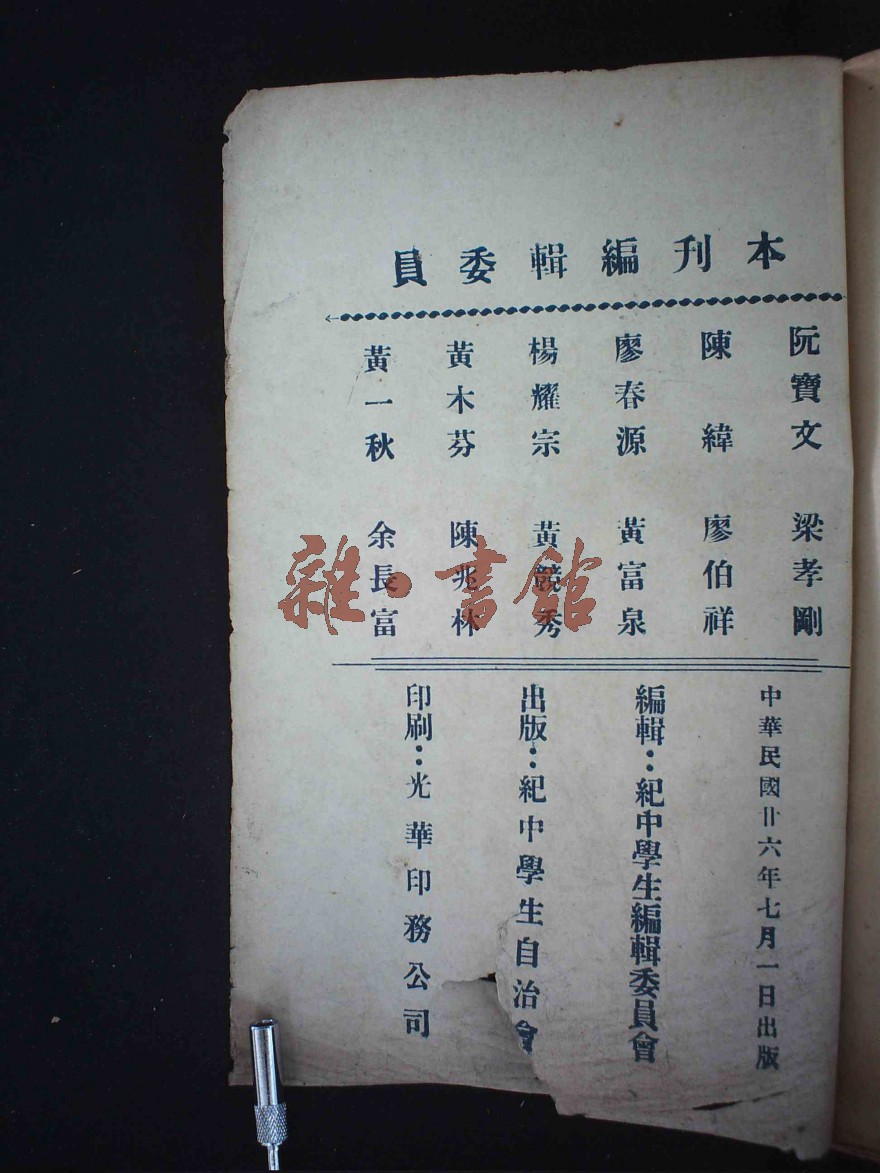 本刊編輯委員
阮寶文
陳緯
廖春源
楊耀宗
黃木芬
黃一秋
梁孝剛
廖伯祥
黃富泉
黃競秀
陳兆林
余長富
中華民國廿六年七月一日出版
編輯：紀中學生編輯委員會
出版：紀中學生自治會
印刷：光華印務公司
雜·書館